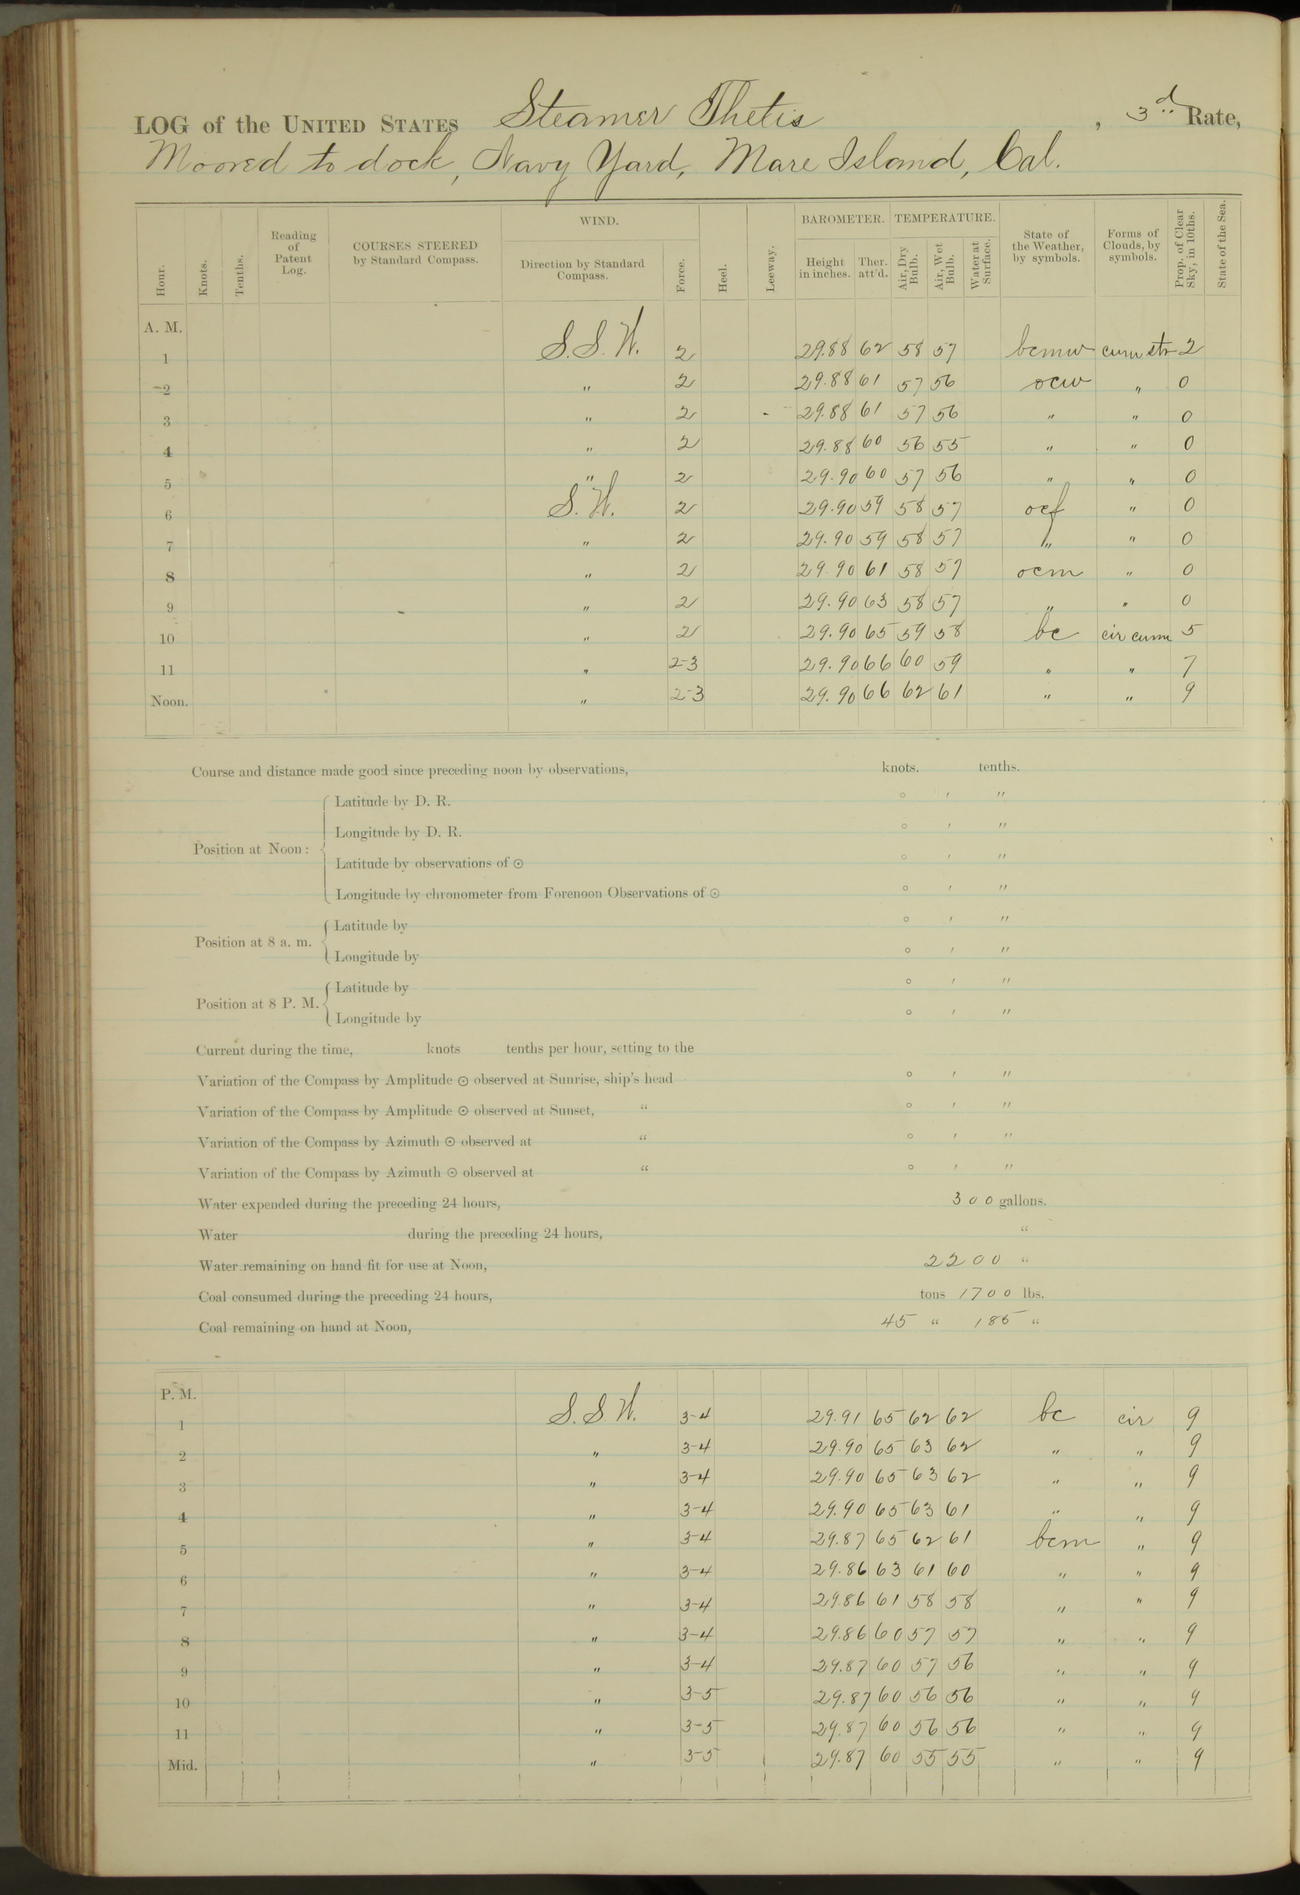 LOG of the UNITED STATES Steamer Thetis, 3d Rate,
Moored to dock, Navy Yard, Mare Island, Cal.
WIND. BAROMETER. TEMPERATURE.
Hour. Knots. Tenths. Reading of Patent Log. COURSES STEERED by Standard Compass. Direction by Standard Compass. Force. Heel. Leeway. Height in inches. Ther. att'd. Air, Dry Bulb. Air, Wet Bulb. Water at Surface. State of the Weather, by symbols. Forms of Clouds, by symbols. Prop. of Clear Sky, in 10ths. State of the Sea.
A. M.
1 S.S.W. 2 29.88 62 58 57 bcmw cum str 2
2 " 2 29.88 61 57 56 ocw " 0
3 " 2 29.88 61 57 56 " " 0
4 " 2 29.88 60 56 55 " " 0
5 " 2 29.90 60 57 56 " " 0
6 S.W. 2 29.90 59 58 57 ocf " 0
7 " 2 29.90 59 58 57 " " 0
8 " 2 29.90 61 58 57 ocm " 0
9 " 2 29.90 63 58 57 " " 0
10 " 2 29.90 65 59 58 bc cir cum 5
11 " 2-3 29.90 66 60 59 " " 7
Noon. " 2-3 29.90 66 62 61 " " 9
Course and distance made good since preceding noon by observations, knots. tenths.
Position at Noon:
Latitude by D. R. ° ' "
Longitude by D. R. ° ' "
Latitude by observations of ⊙ ° ' "
Longitude by chronometer from Forenoon Observations of ⊙ ° ' "
Position at 8 a. m.
Latitude by ° ' "
Longitude by ° ' "
Position at 8 P. M.
Latitude by ° ' "
Longitude by ° ' "
Current during the time, knots tenths per hour, setting to the
Variation of the Compass by Amplitude ⊙ observed at Sunrise, ship's head ° ' "
Variation of the Compass by Amplitude ⊙ observed at Sunset, " ° ' "
Variation of the Compass by Azimuth ⊙ observed at " ° ' "
Variation of the Compass by Azimuth ⊙ observed at " ° ' "
Water expended during the preceding 24 hours, 300 gallons.
Water during the preceding 24 hours, "
Water remaining on hand fit for use at Noon, 2200 "
Coal consumed during the preceding 24 hours, tons 1700 lbs.
Coal remaining on hand at Noon, 45 " 185 "
P. M.
1 S.S.W. 3-4 29.91 65 62 62 bc cir 9
2 " 3-4 29.90 65 63 62 " " 9
3 " 3-4 29.90 65 63 62 " " 9
4 " 3-4 29.90 65 63 61 " " 9
5 " 3-4 29.87 65 62 61 bcm " 9
6 " 3-4 29.86 63 61 60 " " 9
7 " 3-4 29.86 61 58 58 " " 9
8 " 3-4 29.86 60 57 57 " " 9
9 " 3-4 29.87 60 57 56 " " 9
10 " 3-5 29.87 60 56 56 " " 9
11 " 3-5 29.87 60 56 56 " " 9
Mid. " 3-5 29.87 60 55 55 " " 9